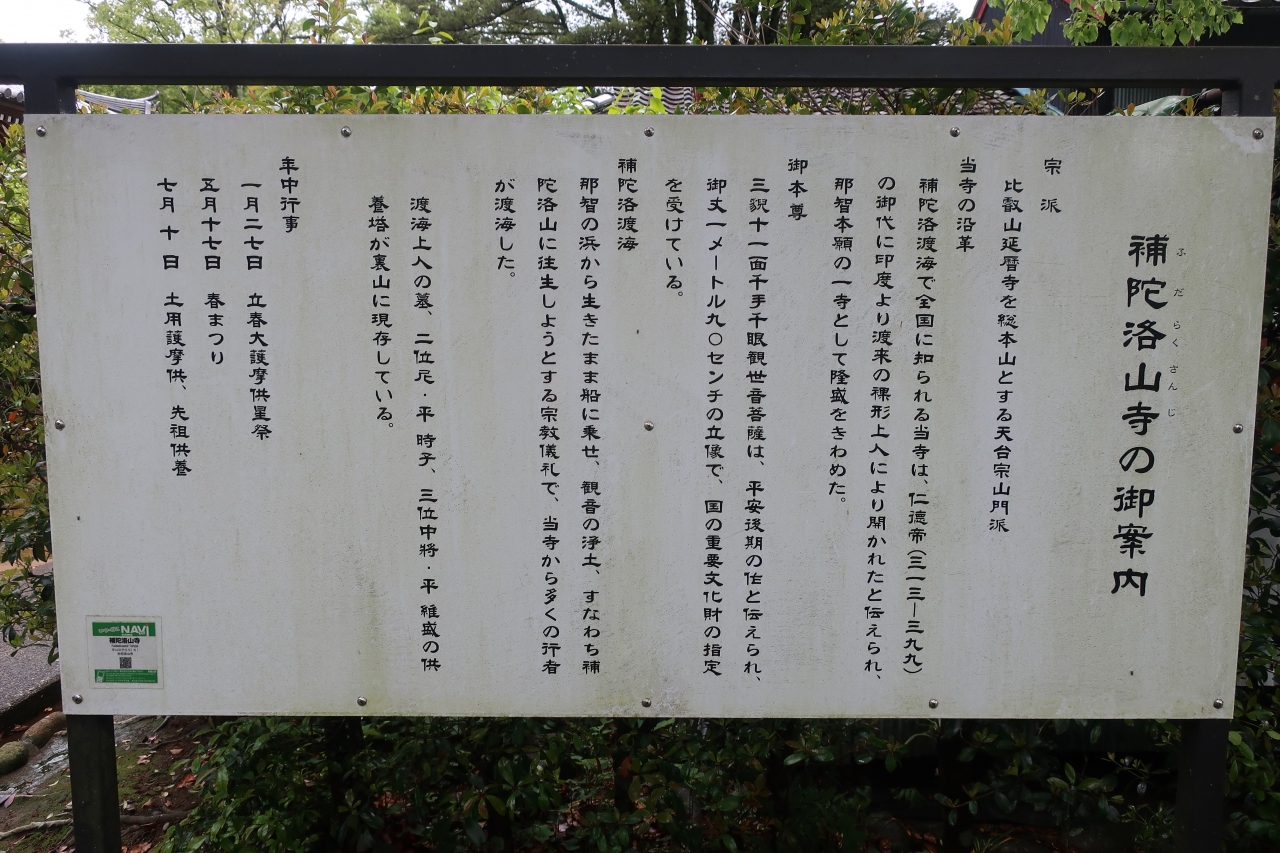 補陀洛山寺の御案内
ふだらくさんじ
宗派
比叡山延暦寺を総本山とする天台宗山門派
当寺の沿革
補陀洛渡海で全国に知られる当寺は、仁徳帝(三一三―三九九)
の御代に印度より渡来の裸形上人により開かれたと伝えられ、
那智本願の一寺として隆盛をきわめた。
御本尊
三貌十一面千手千眼観世音菩薩は、平安後期の作と伝えられ、
御丈一メートル九〇センチの立像で、国の重要文化財の指定
を受けている。
補陀洛渡海
那智の浜から生きたまま船に乗せ、観音の浄土、すなわち補
陀洛山に往生しようとする宗教儀礼で、当寺から多くの行者
が渡海した。
渡海上人の墓、二位尼・平 時子、三位中将・平 維盛の供
養塔が裏山に現存している。
年中行事
一月二七日 立春大護摩供星祭
五月十七日 春まつり
七月十日 土用護摩供、先祖供養
NAVI
補陀洛山寺